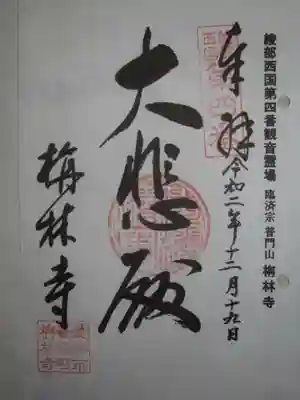 綾部西国第四番観音霊場 臨済宗 普門山 栴林寺
奉拝 令和二年十二月十九日
大悲殿
栴林寺